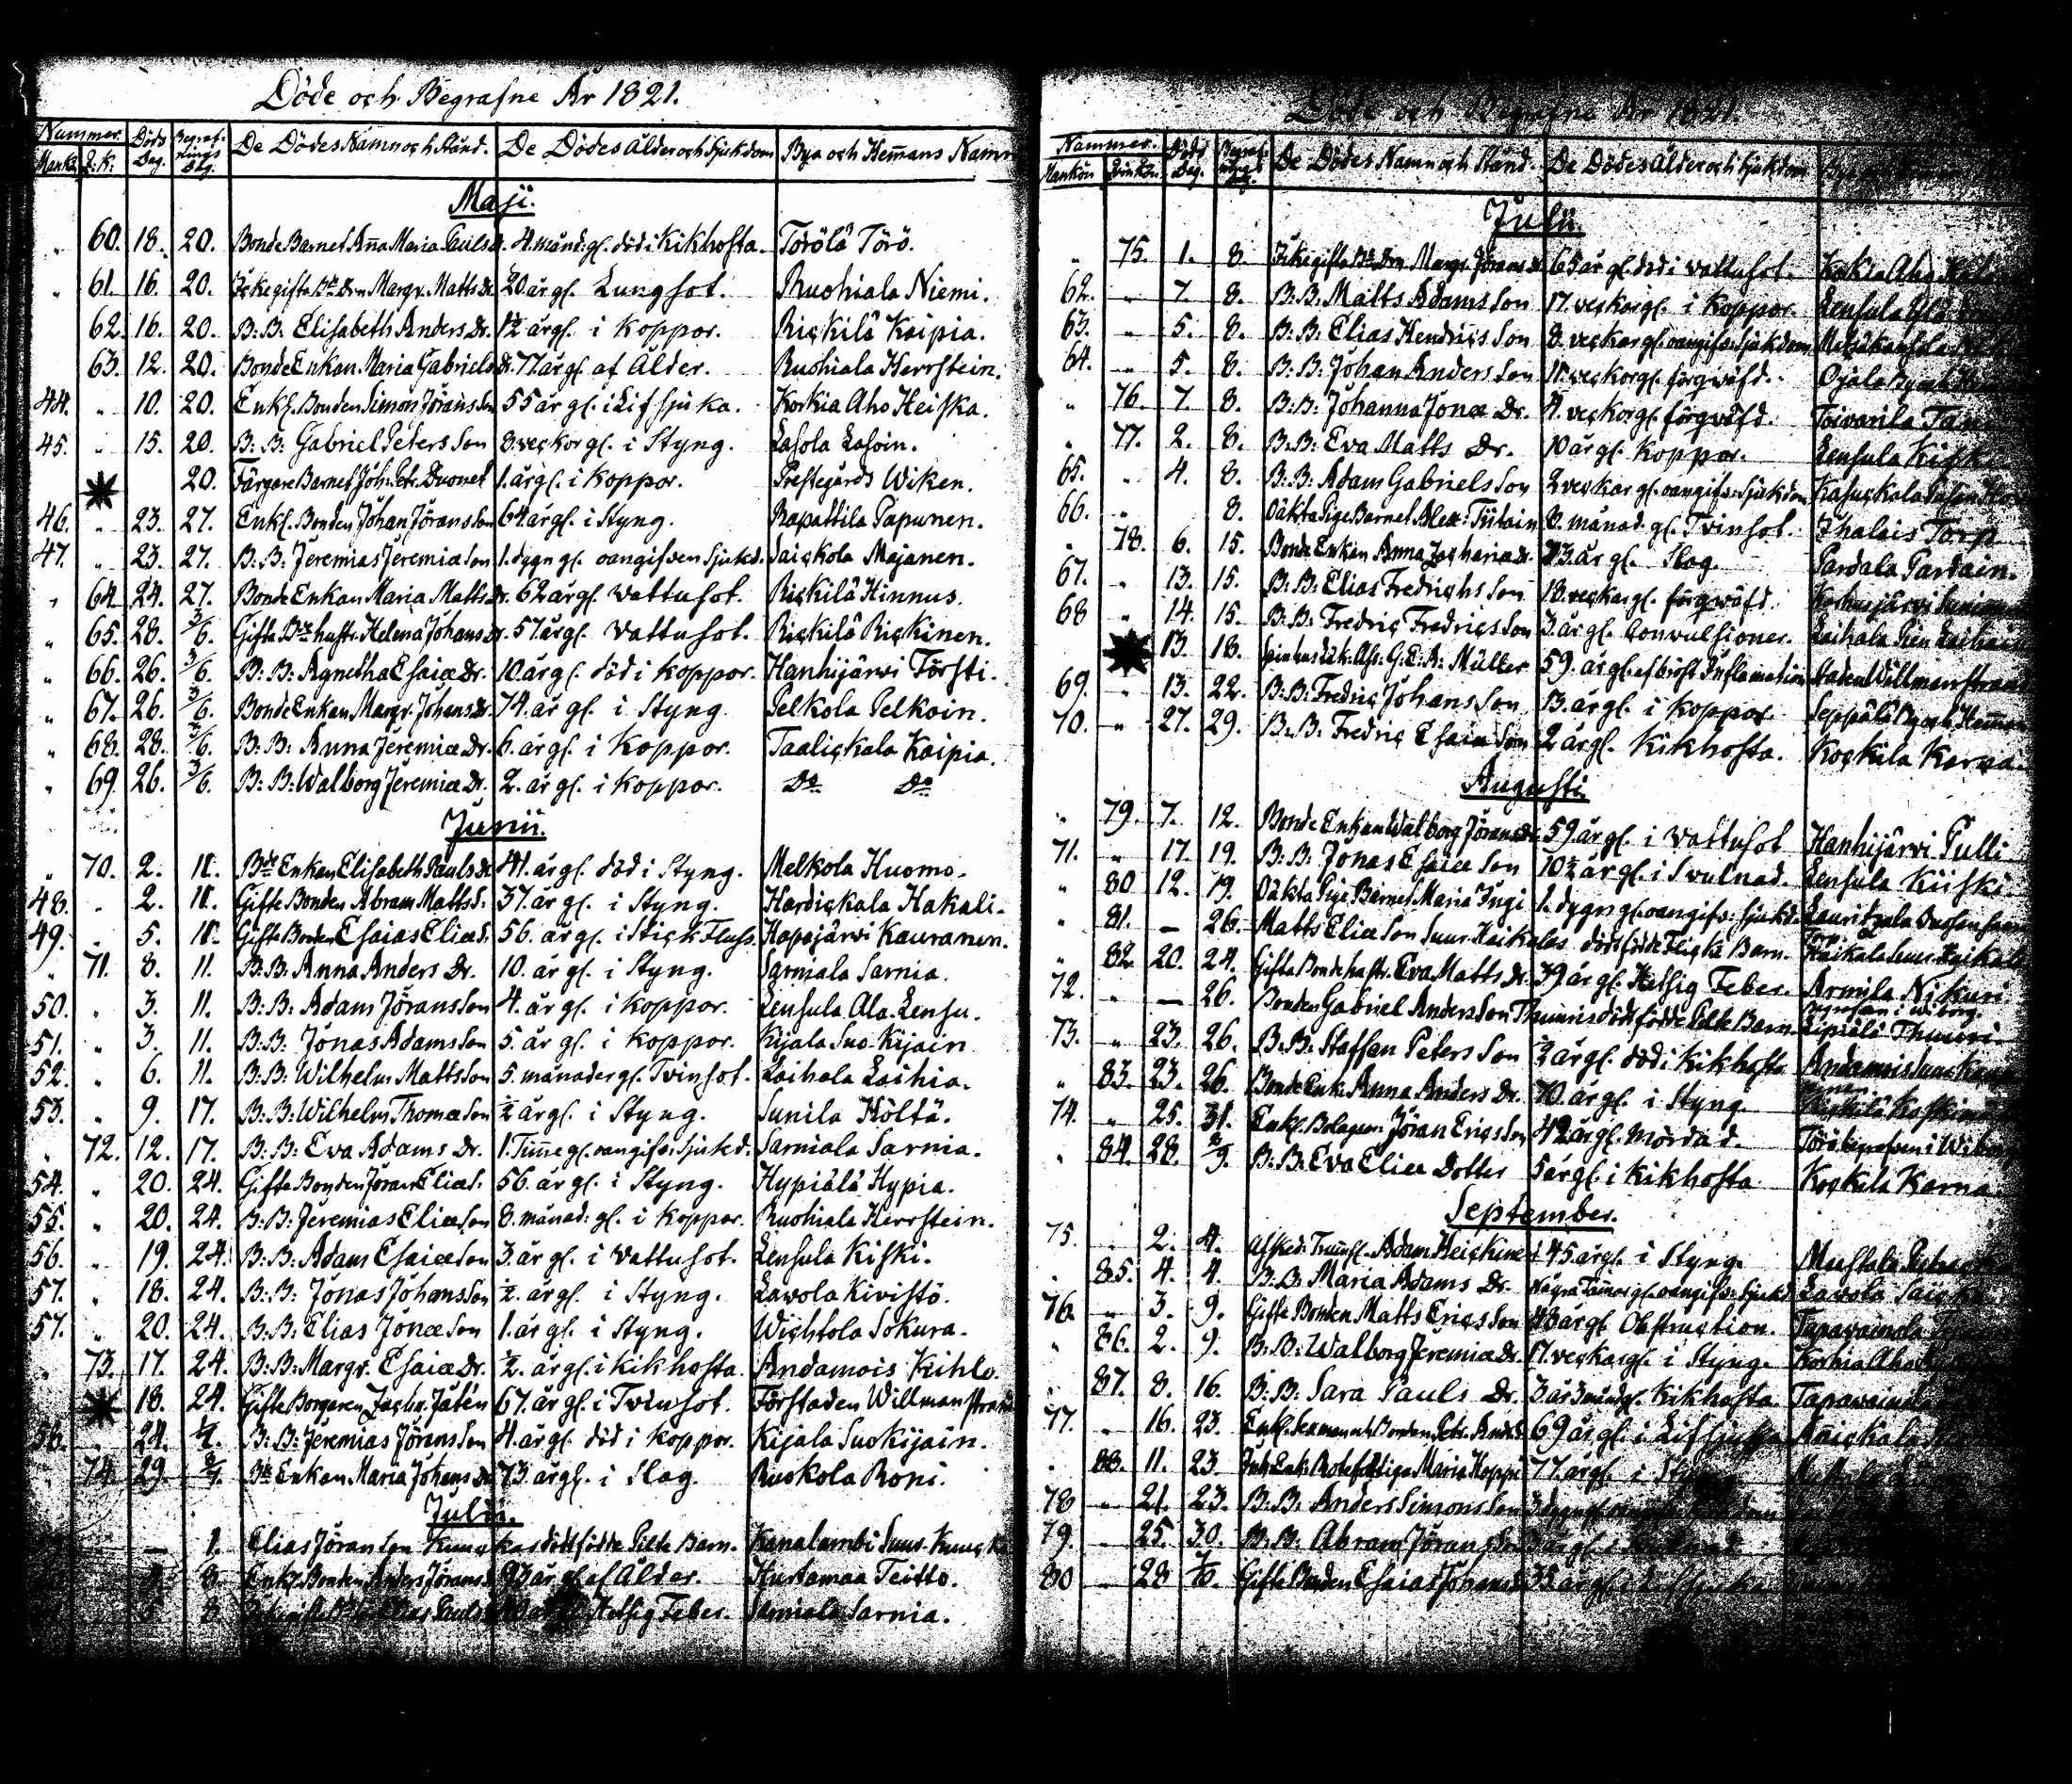 Döde och Begrafne År 1821.
Nummer. Döds Dag. Begraf: nings Dg. De Dödes Namn och Stånd. De Dödes Ålder och Sjukdom Bya och Hem̄ans Namn
Mank: Q.K.
Maji.
" 60. 18. 20. Bonde Barnet An̄a Maria Pauls Dr. 4. mån̄d: gl. död i Kikhosta. Törölä Törö.
" 61. 16. 20. Icke gifta Bde Drn Margr. Matts Dr. 20. år gl. Lungsot. Ruohiala Niemi.
" 62. 16. 20. B: B: Elisabeth Anders Dr. 1½ år gl. i Koppor. Rickilä Kaipia.
" 63. 12. 20. Bonde Enkan Maria Gabriels Dr. 77. år gl. af Ålder. Ruohiala Herrstein.
44. " 10. 20. Enkl. Bonden Simon Jörans Son 55 år gl. i Lifsjuka. Korkia Aho Heiska.
45. " 15. 20. B: B: Gabriel Peters Son 8. veckor gl. i Styng. Lasola Lasoin.
20. Färgare Barnet Joh: Petr. Duonet 1. år gl. i Koppor. Prestegårds Wiken.
46. " 23. 27. Enkl. Bonden Johan Jörans Son 64 år gl. i Styng. Rapattila Papunen.
47. " 23. 27. B: B: Jeremias Jeremiæ Son 1. dygn gl. oangifven Sjukd. Saickola Majanen.
" 64. 24. 27. Bonde Enkan Maria Matts Dr. 62 år gl. Vattusot. Rickilä Hinnus.
" 65. 28. 3/6. Gifta Bde hustr: Helena Johans Dr. 57 år gl. Vattusot. Rickilä Rickinen.
" 66. 26. 3/6. B: B: Agnetha Esaiæ Dr. 10. år gl. död i Koppor. Hanhijärvi Törsti.
" 67. 26. 3/6. Bonde Enkan Margr. Johans Dr. 74. år gl. i Styng Pelkola Pelkoin.
" 68. 28. 3/6. B: B: Anna Jeremiæ Dr. 6. år gl. i Koppor. Taalickala Kaipia.
" 69. 26. 3/6. B: B: Walborg Jeremiæ Dr. 2. år gl. i Koppor. Do Do
Junii.
" 70. 2. 11. Bde Enkan Elisabeth Pauls Dr 41. år gl. död i Styng. Melkola Huomo.
48. " 2. 11. Gifte Bonden Abram Matts S. 37. år gl. i Styng. Hardickala Hakali.
49. " 5. 11. Gifte Bonden Esaias Eliæ S. 56. år gl. i Stick Fluss. Hapajärvi Kauranen.
" 71. 8. 11. B: B: Anna Anders Dr. 10. år gl. i Styng. Sarniala Sarnia.
50. " 3. 11. B: B: Adam Jörans Son 4. år gl. i Koppor. Lensula Ala-Lensu.
51. " 3. 11. B: B: Jonas Adams Son 5. år gl. i Koppor. Kijala Suo-Kijain
52. " 6. 11. B: B: Wilhelm Matts Son 5. månader gl. Tvinsot. Laihala Laihia.
53. " 9. 17. B: B: Wilhelm Thomæ Son ½ år gl. i Styng. Sunila Höltä.
" 72. 12. 17. B: B: Eva Adams Dr. 1. Tim̄e gl. oangifv: Sjukd. Sarniala Sarnia.
54. " 20. 24. Gifte Bonden Jöran Eliæ S. 56. år gl. i Styng. Hypiälä Hypia.
55. " 20. 24. B: B: Jeremias Eliæ Son 8. månad: gl. i Koppor. Ruohiala Herrstein.
56. " 19. 24. B: B: Adam Esaiæ Son 3. år gl. i Vattusot. Lensula Kiski.
57. " 18. 24. B: B: Jonas Johans Son ½ år gl. i Styng. Lavola Kivistö.
57. " 20. 24. B: B: Elias Jonæ Son 1. år gl. i Styng. Wichtola Sokura.
" 73. 17. 24. B: B: Margr. Esaiæ Dr. ½. år gl. i Kikhosta Andamois Kihlo.
18. 24. Gifte Borgaren Zachr. Jatén 67. år gl. i Tvinsot. Förstaden Willmanstrand
56. " 24. 1/7. B: B: Jeremias Jörans Son 4. år gl. död i Koppor. Kijala Suokijain.
74. 29. 2/7. Bde Enkan Maria Johans Dr 73. år gl. i Slag. Ruokola Roni.
Julii.
— 1. Elias Jöran Son Kuuckas dödfödde Pilte Barn. Kanalambi Suur-Kuucka
8. Enkl. Bonden Anders Jörans S. 93 år gl. af Ålder. Hurtamaa Teitto.
8. Elias Pauls Hetsig Feber. Sarniala Sarnia.
Döde och Begrafne År 1821.
Nummer. Döds Dag. Begraf: nings Dg. De Dödes Namn och Stånd. De Dödes Ålder och Sjukdom
Mankön Qvinkön
Julii.
" 75. 1. 8. Icke gifta Bde Drn Margr. Jörans Dr 65 år gl. död i Vattusot. Korkia Aho
62. " 7. 8. B: B: Matts Adams Son 17. veckor gl. i Koppor. Lensula
63. " 5. 8. B: B: Elias Hendrics Son 8. veckor gl. oangifv: Sjukdom
64. " 5. 8. B: B: Johan Anders Son 11. veckor gl. förqväfd. Ojala
" 76. 7. 8. B: B: Johanna Jonæ Dr. 4. veckor gl. förqväfd. Toivarila
" 77. 2. 8. B: B: Eva Matts Dr. 10 år gl. Koppor. Lensula Kiski
65. " 4. 8. B: B: Adam Gabriels Son 2 veckor gl. oangifv: Sjukdom
66. " 8. Oäkta Pige Barnet Alex: Tiitain 8. månad. gl. Tvinsot. Ihalais Torp
" 78. 6. 15. Bonde Enkan Anna Zachariæ Dr. 73. år gl. Slag. Pardala Pardain.
67. " 13. 15. B: B: Elias Fredrichs Son 18. veckor gl. förqväfd.
68 " 14. 15. B: B: Fredric Fredrics Son 3. år gl. Convulsioner. Laihala Pien Laihain
13. 18. G: E: A: Müller 59. år gl. af bröst Inflamation Staden Willmanstrand
69. " 13. 22. B: B: Fredric Johans Son 13. år gl. i Koppor. Seppälä
70. " 27. 29. B: B: Fredric Esaiæ Son 2 år gl. Kikhosta. Kockila Karna.
Augusti.
" 79. 7. 12. Bonde Enkan Walborg Jörans Dr 59 år gl. i Vattusot Hanhijärvi Pulli
71. " 17. 19. B: B: Jonas Esaiæ Son 10½ år gl. i Svulnad. Lensula Kiiski
" 80. 12. 19. Oäkta Pige Barnet Maria Ingi 1. dygn gl. oangifv: Sjukd.
" 81. — 26. Matts Eliæ Son Suur-Haikalas dödfödde Flicke Barn.
" 82. 20. 24. Gifta Bonde hustr. Eva Matts Dr. 39 år gl. Hetsig Feber. Armila Nikuri
72. " — 26. Bonden Gabriel Anders Son Thuuris dödfödde Pilte Barn. Thuuri.
73. " 23. 26. B: B: Staffan Peters Son ½ år gl. död i Kikhosta
" 83. 23. 26. Bonde Enk: Anna Anders Dr. 70. år gl. i Styng.
74. " 25. 31. Enkl. Bolagsm: Jöran Erics Son 42 år gl. Mördad.
" 84. 28. 2/9. B: B: Eva Eliæ Dotter 5 år gl. i Kikhosta Kockila Karna.
September.
75. " 2. 4. Afsked: Adam Heickinen 45 år gl. i Styng.
85. 4. 4. B: B: Maria Adams Dr. några Tim̄ar gl. oangifv: Sjukd. Lavola
76. " 3. 9. Gifte Bonden Matts Erics Son 48 år gl. Obstruction.
" 86. 2. 9. B: B: Walborg Jeremiæ Dr. 17. veckor gl. i Styng. Korkia Aho
" 87. 8. 16. B: B: Sara Pauls Dr. 3 år 3 mån gl. Kikhosta
77. " 16. 23. 69 år gl. i Lifsjuka
88. 11. 23. Maria Hoppi 77. år gl. i
78 " 21. 23. B: B: Anders Simons Son
79. " 25. 30. B: B: Abram Jörans Son
80 " 28 Gifte Bonden Esaias Johans S. 35 år gl. i Lifsjuka